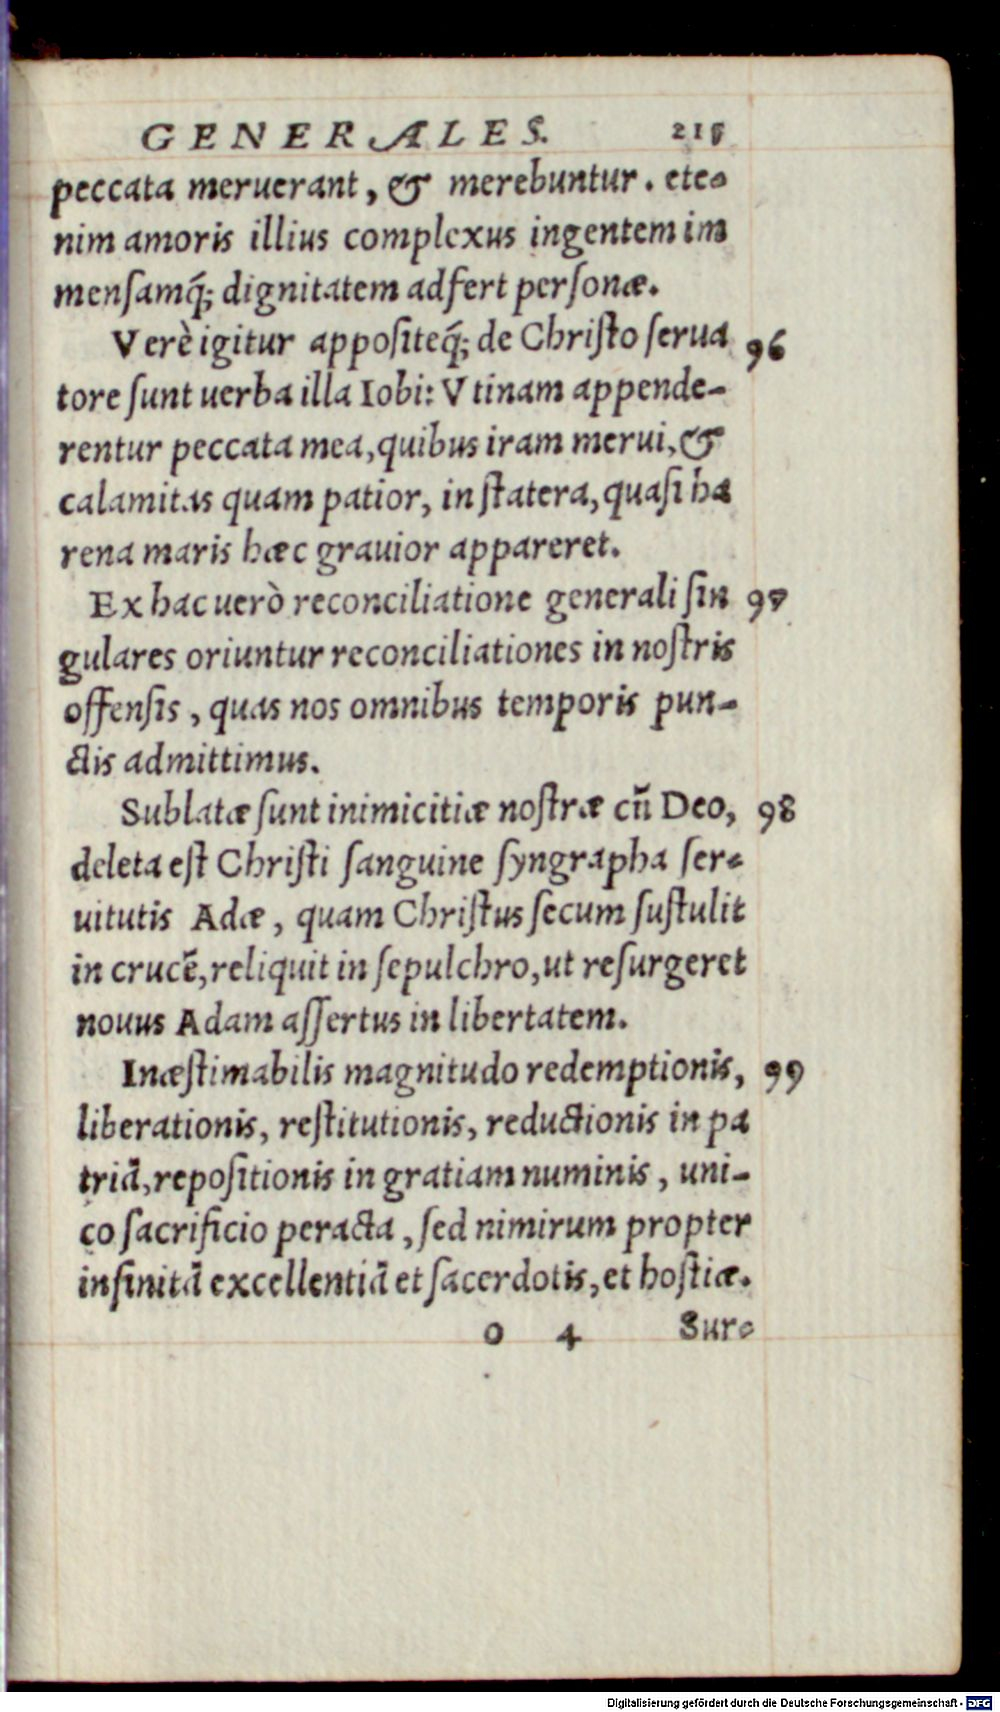 GENERALES. 215
peccata meruerant, & merebuntur. ete-
nim amoris illius complexus ingentem im
mensamq́; dignitatem adfert personæ.
Verè igitur appositeq́; de Christo serua 96
tore sunt uerba illa Iobi: Vtinam appende-
rentur peccata mea, quibus iram merui, &
calamitas quam patior, in statera, quasi ha
rena maris hæc grauior appareret.
Ex hac uerò reconciliatione generali sin 97
gulares oriuntur reconciliationes in nostris
offensis, quas nos omnibus temporis pun-
ctis admittimus.
Sublatæ sunt inimicitiæ nostræ cũ Deo, 98
deleta est Christi sanguine syngrapha ser-
uitutis Adæ, quam Christus secum sustulit
in crucẽ, reliquit in sepulchro, ut resurgeret
nouus Adam assertus in libertatem.
Inæstimabilis magnitudo redemptionis, 99
liberationis, restitutionis, reductionis in pa
triã, repositionis in gratiam numinis, uni-
co sacrificio peracta, sed nimirum propter
infinitã excellentiã et sacerdotis, et hostiæ.
o 4 Sur-
Digitalisierung gefördert durch die Deutsche Forschungsgemeinschaft - DFG